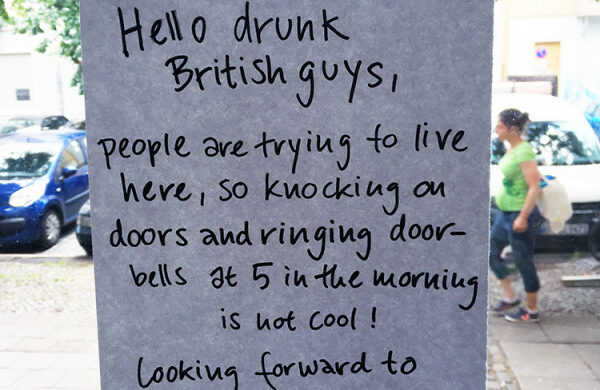 Hello drunk
British guys,
people are trying to live
here, so knocking on
doors and ringing door-
bells at 5 in the morning
is not cool!
Looking forward to